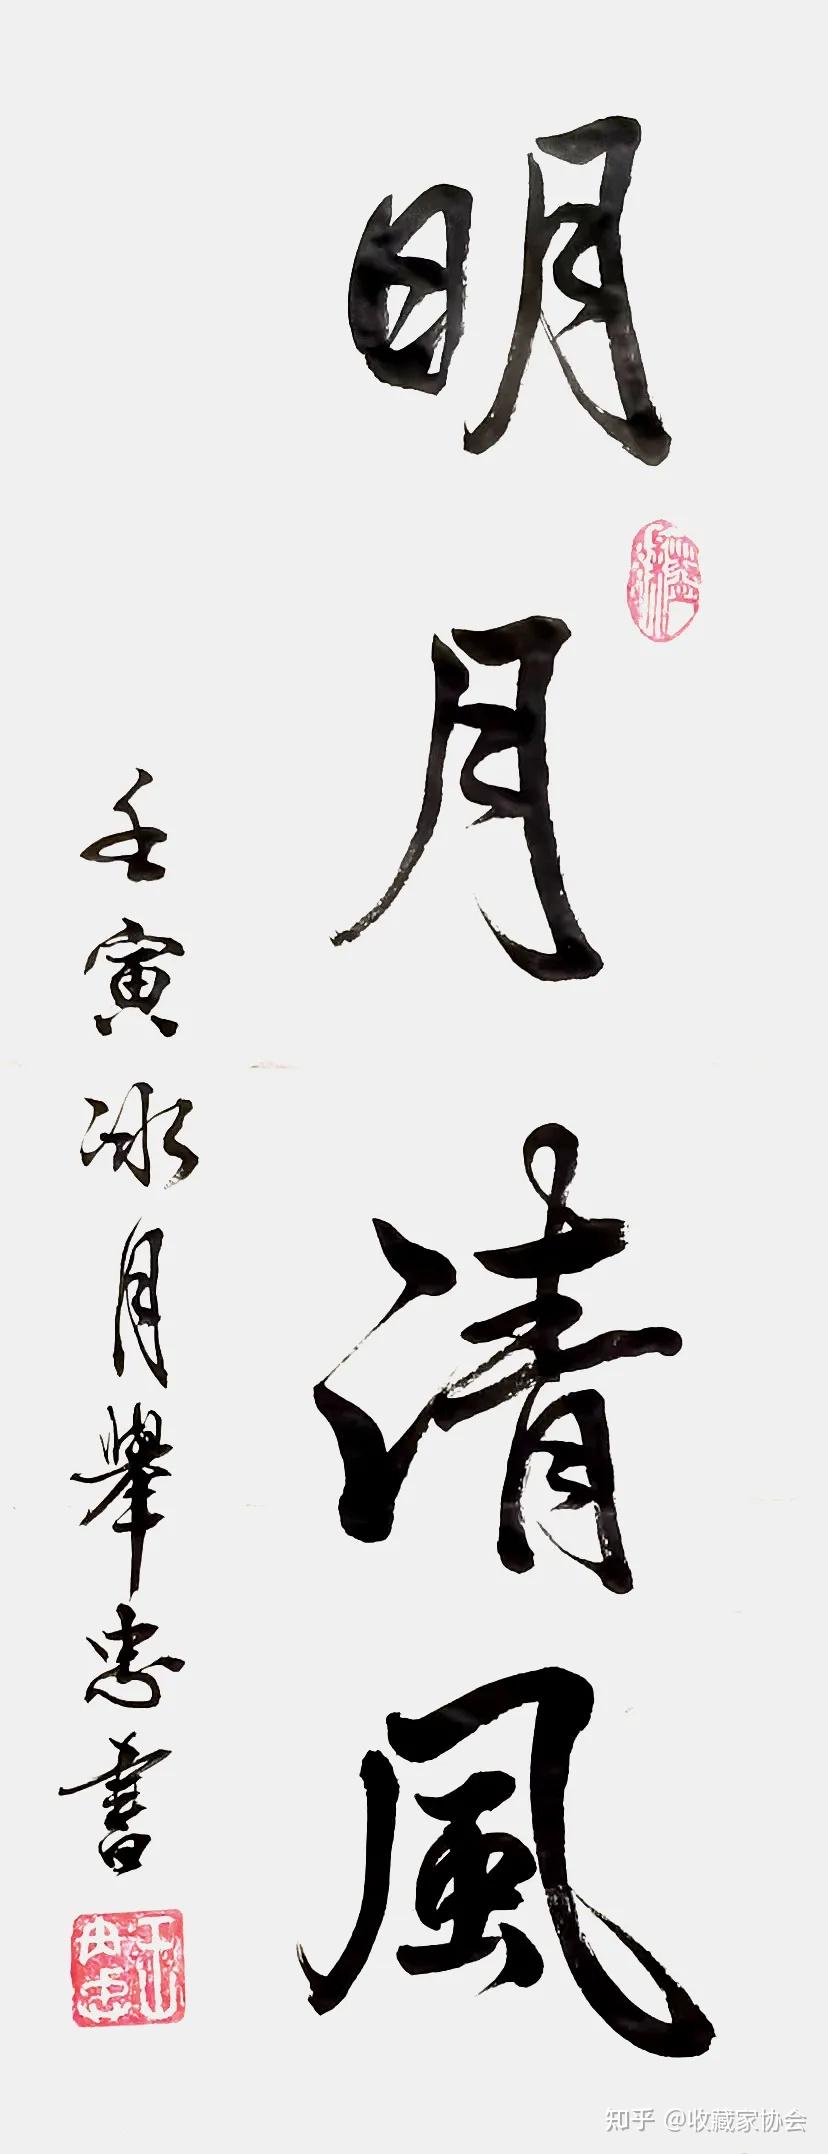 明月清風
壬寅冰月舉忠書
知乎 @收藏家协会